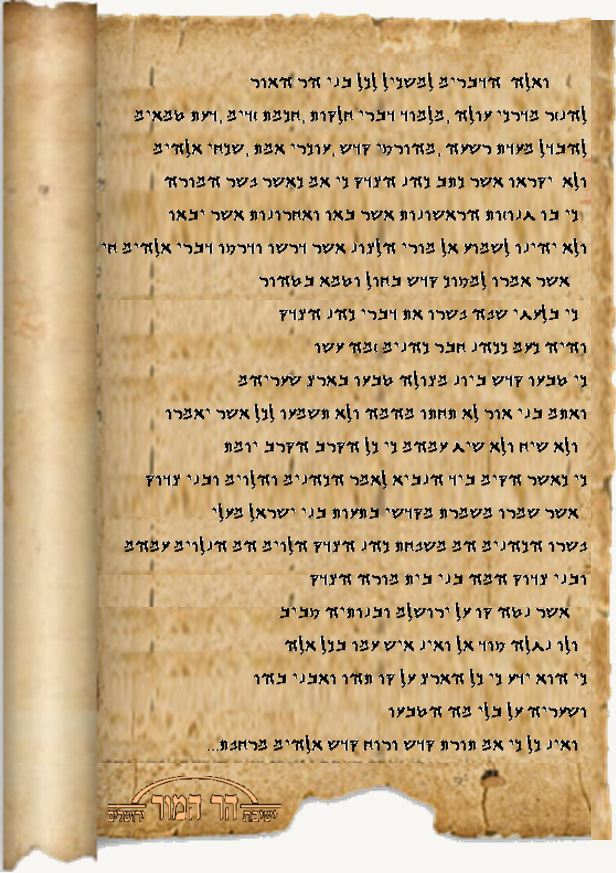 ואלה הדברים למשכיל לכל בני הר האור
להזר מדרכי עולה ,מלמוד דברי חלקות ,חכמת גוים ,דעת טמאים
להבדל מעדת רשעה ,מהורסי קדש ,עוכרי אמת ,שכחי אלהים
ולא יקראו אשר כתב כהן הצדק כי אם כאשר בשר המורה
כי בו הראשונות אשר באו ואחרונות אשר יבאו
ולא יהינו לשמוע אל מורי הלצון אשר דרשו דברי אלהים חי
אשר אמרו קדש בחול וטמא בטהור
כי בלעגי שפה בשרו את דברי כהן הצדק
והיה כעם ככהן חבר כהנים זמה עשו
כי טבעו קדש ביון מצולה טבעו בארץ שעריהם
ואתם בני אור לא תחתו מהמה ולא תשמעו לכל אשר יאמרו
ולא שיח ולא שיג עמהם כי כל הקרב הקרב יומת
כי כאשר הקים ביד הנביא לאמר הכהנים והלוים ובני צדוק
אשר שמרו משמרת מקדשי בתעות בני ישראל מעלי
בשרו הכהנים הם כהן הצדק הלוים הם הנלוים עמהם
ובני צדוק המה בני בית מורה הצדק
אשר נטה קו על ירושלם ובנותיה סביב
ולו נגלה סוד אל ואין איש עמו בכל אלה
כי הוא ידע כי כל הארץ על קו תהו ואבני בהו
ושעריה על בלי מה הטבעו
ואין כל כי אם תורת קדש ורוח קדש אלהים מרחפת...
ישיבת הר המור ירושלים